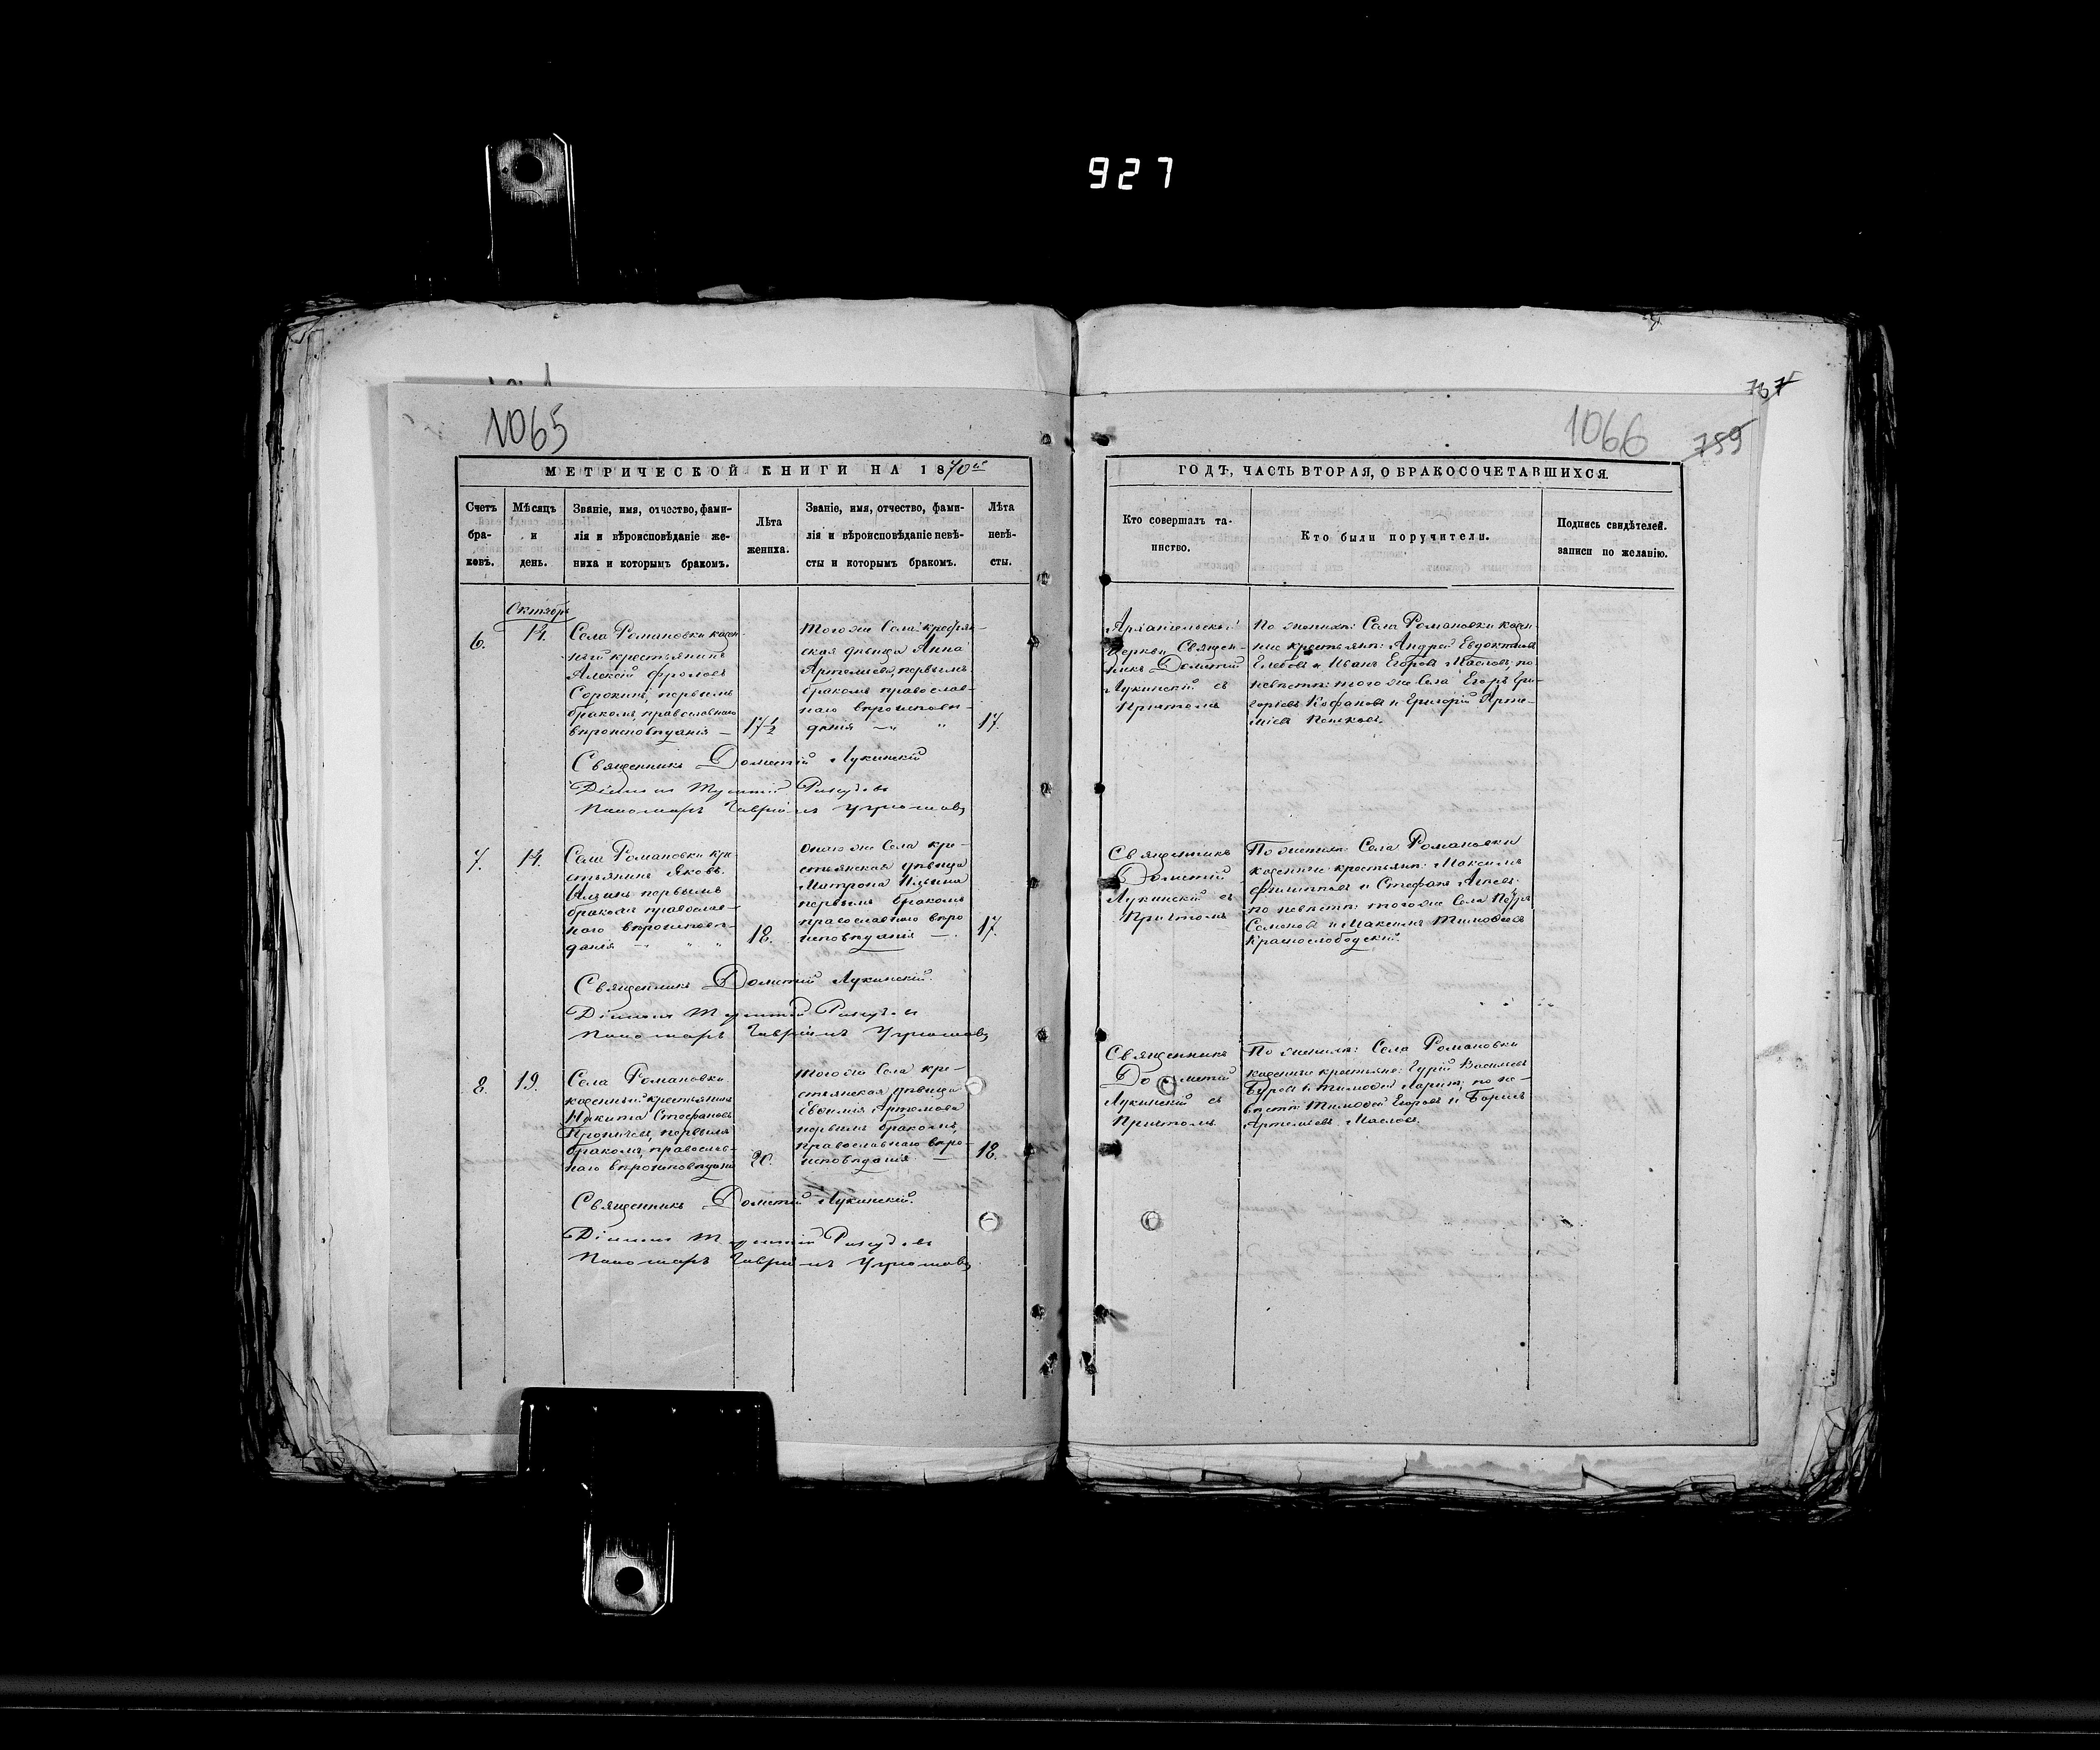 927
1065
МЕТРИЧЕСКОЙ КНИГИ НА 1870й
Счетъ браковъ.
Мѣсяцъ и день.
Званіе, имя, отчество, фамилія и вѣроисповѣданіе жениха и которымъ бракомъ.
Лѣта жениха.
Званіе, имя, отчество, фамилія и вѣроисповѣданіе невѣсты и которымъ бракомъ.
Лѣта невѣсты.
Октябрь
6.
14.
Села Романовки казен-
ный крестьянинъ
Алексій Фроловъ
Сорокинъ, первымъ
бракомъ, православнаго
вѣроисповѣданія —
17½
Того же Села крестьян-
ская дѣвица Анна
Артемьева, первымъ
бракомъ православ-
наго вѣроисповѣ-
данія
17.
Священникъ Дометій Лукинскій
Пономарь Гавріилъ
7.
14.
Села Романовки кре-
стьянинъ Яковъ
первымъ
бракомъ православ-
наго вѣроисповѣ-
данія
18.
Онаго же Села кре-
стьянская дѣвица
Матрона Ильина
первымъ бракомъ
православнаго вѣро
исповѣданія —.
17.
Священникъ Дометій Лукинскій.
Пономарь Гавріилъ
8.
19.
Села Романовки
казенный крестьянинъ
Никита Стефановъ
первымъ
бракомъ, православ-
наго вѣроисповѣданія
20.
Того же Села кре-
стьянская дѣвица
Евфимія Артемова
первымъ бракомъ,
православнаго вѣро-
исповѣданія —
18.
Священникъ Дометій Лукинскій.
Пономарь Гавріилъ
767
1066
759
ГОДЪ, ЧАСТЬ ВТОРАЯ, О БРАКОСОЧЕТАВШИХСЯ.
Кто совершалъ таинство.
Кто были поручители.
Подпись свидѣтелей. записи по желанію.
Архангельской
Церкви Священ-
никъ Дометій
Лукинскій съ
Причтомъ
По женихѣ: Села Романовки казен-
ные крестьян: Андрей Евдокимовъ
Глебовъ и Иванъ Егоровъ Масловъ, по
невѣстѣ: того же Села Егоръ Гри-
горьевъ и Григорій Арте-
міевъ Пешковъ.
Священникъ
Дометій
Лукинскій съ
Причтомъ
По женихѣ: Села Романовки
казенные крестьян: Максимъ
Филипповъ и Стефанъ
по невѣстѣ: того же Села Петръ
Семеновъ и Максимъ Тимофеевъ
Краснослободскій.
Священникъ
Дометій
Лукинскій съ
Причтомъ.
По женихѣ: Села Романовки
казенные крестьяне: Гурій Васильевъ
Буровъ и Тимофей Ларинъ; по не-
вѣстѣ: Тимофей Егоровъ и Борисъ
Артемьевъ Масловъ.